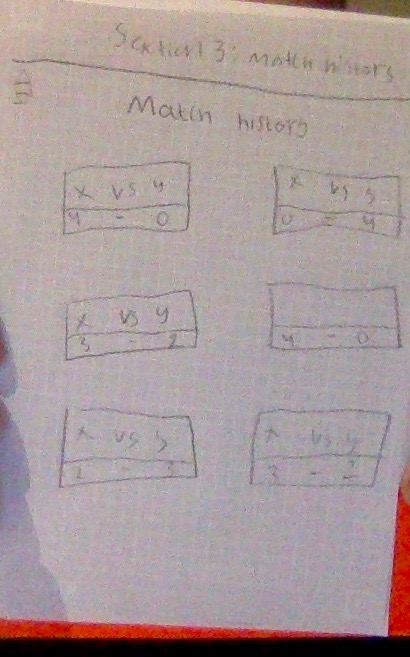 Section 3: Match history
Match history
x vs y
4 - 0
x vs y
0 - 4
x vs y
3 - 2
4 - 0
x vs y
2 - 3
x vs y
3 - 2